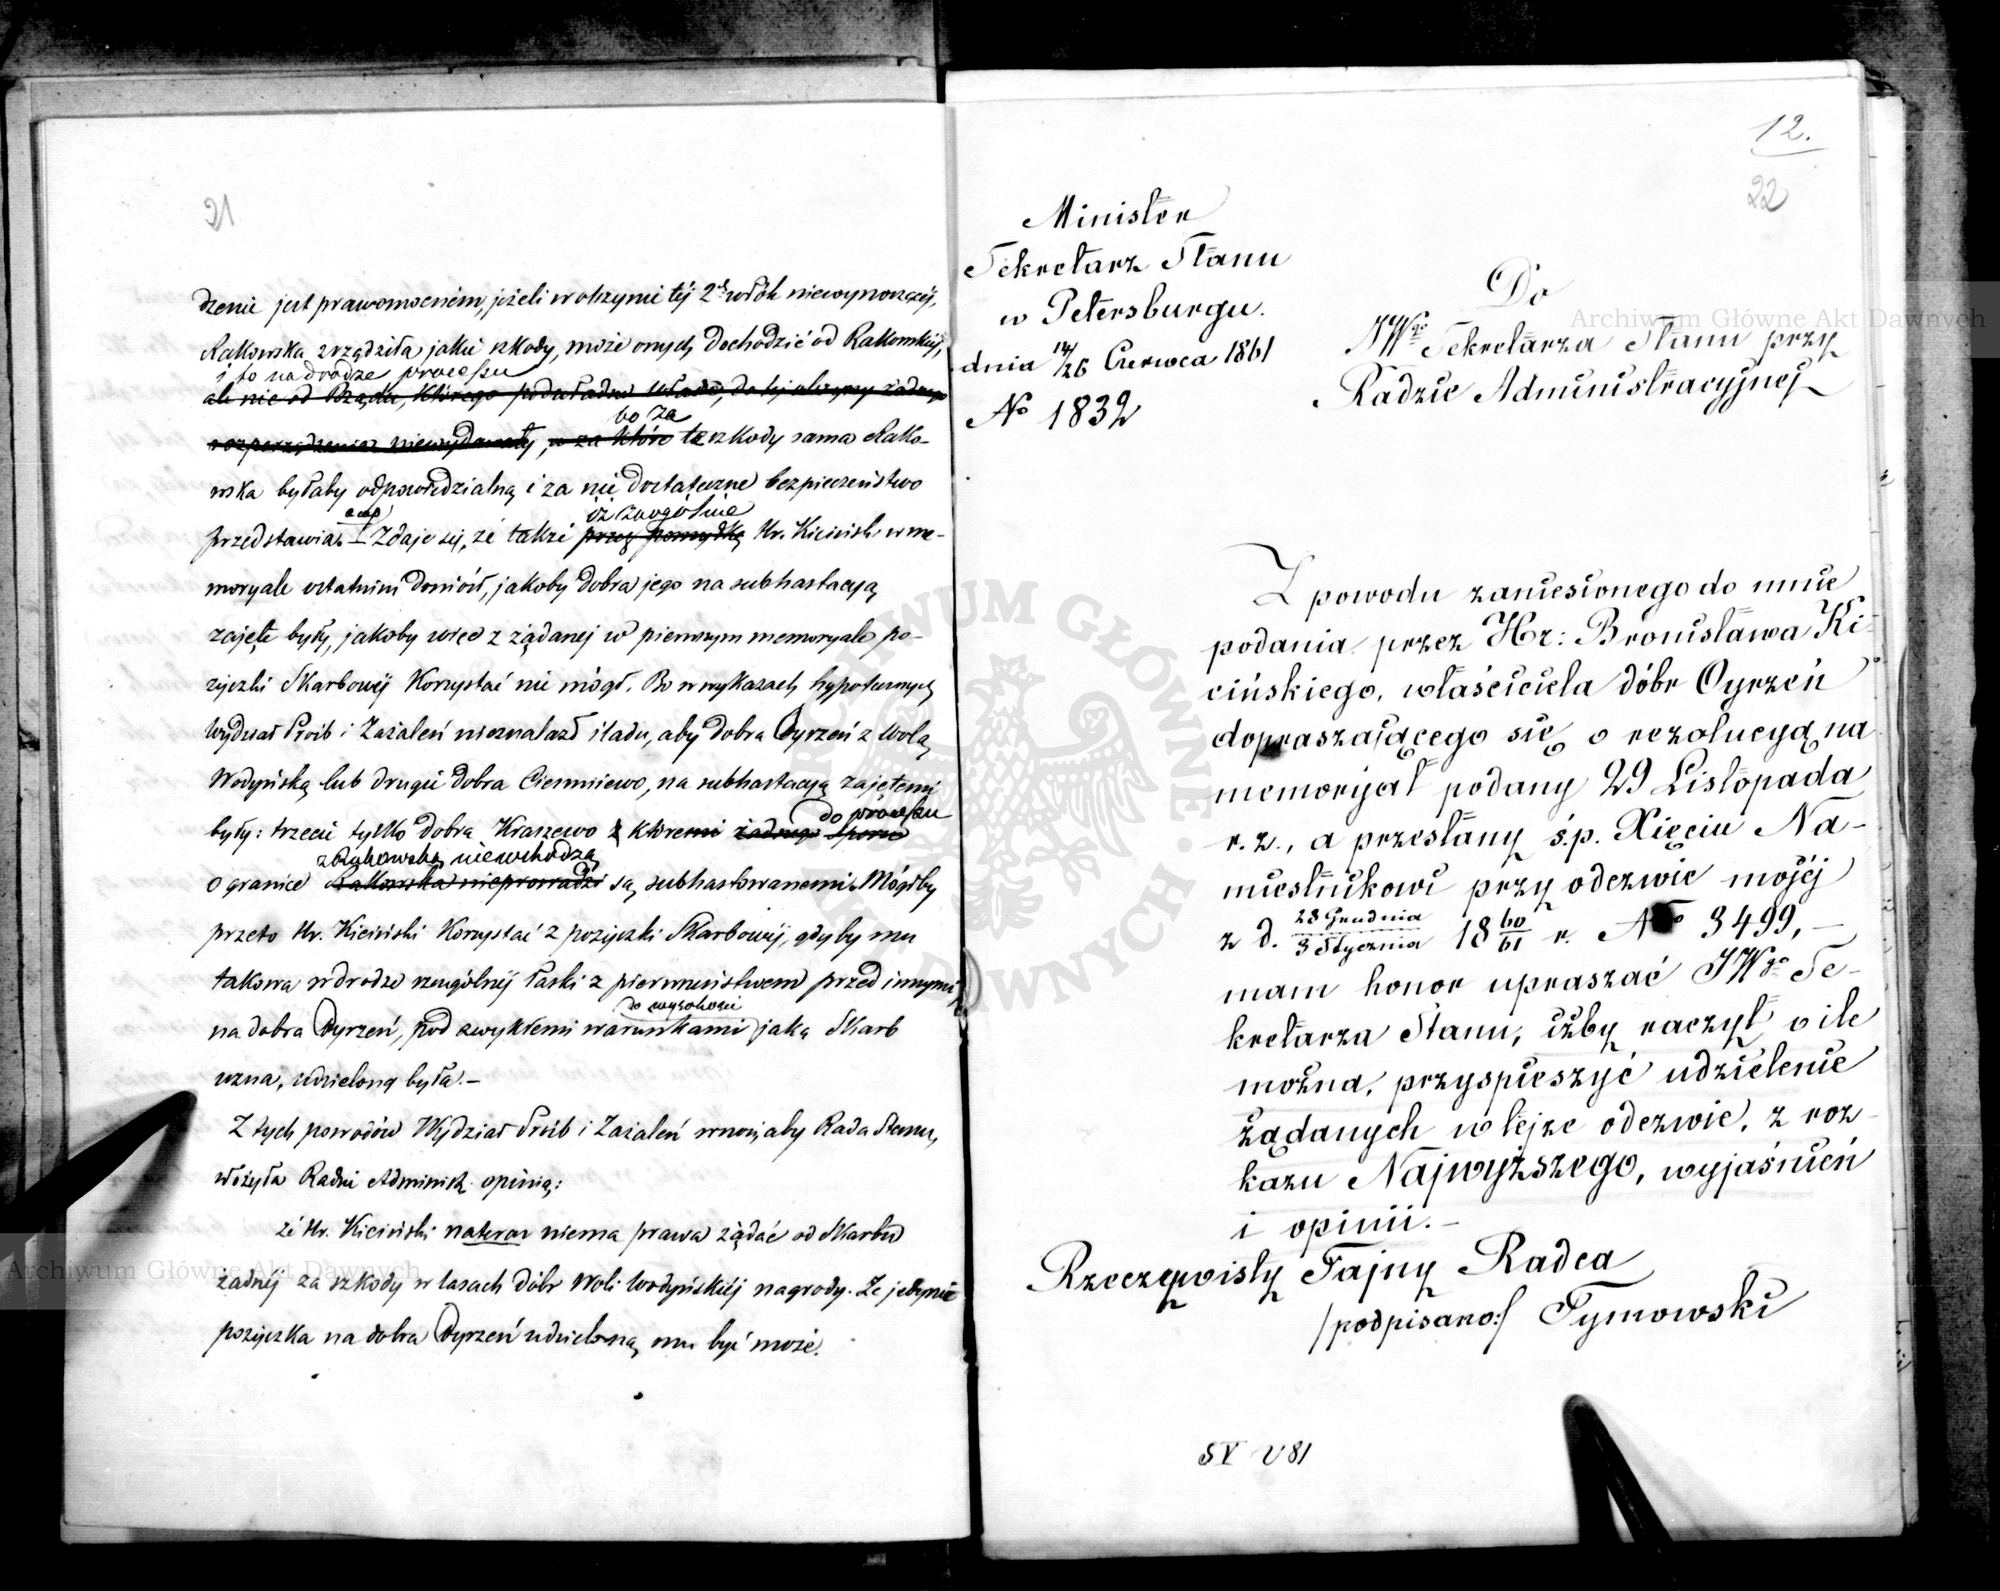 21
dzenie jest prawomocném, jeżeli w obrzynie téj 2ch włók niewynoszącéj,
Rakowska zrządziła jakie szkody, może onych dochodzić od Rakowskiéj,
i to na drodze processu
ale nie od Rządu, którego podwładna władza, do téj obrzyny żadnego
bo za
rozporządzenia niewydawały, a za które te szkody sama Rako-
wska byłaby odpowiedzialną i za nie dostateczne bezpieczeństwo
przedstawia. – Zdaje się, że także przez pomyłkę Hr. Kiciński w me-
moryale ostatnim doniósł, jakoby dobra jego na subhastacyą
zajęte były, jakoby więc z żądanej w pierwszym memoryale po-
życzki Skarbowéj korzystać nie mógł. Bo w wykazach hypotecznych
Wydział Próśb i Zażaleń nieznalazł śladu, aby dobra Oyrzeń z Wolą
Wodyńską lub drugie dobra Ciemniewo, na subhastacyą zajętemi
do processu
były: trzecie tylko dobra Kraszewo z któremi żadnego sporu
z Rakowską niewchodzą
o granice Rakowska nieprowadzi są subhastowanemi. Mógłby
przeto Hr. Kiciński korzystać z pożyczki Skarbowéj, gdyby mu
takowa w drodze szczególnéj łaski z pierwszeństwem przed innymi
do wysokości
na dobra Oyrzeń, pod zwykłemi warunkami jaką Skarb
uzna, udzieloną była. –
Z tych powodów Wydział Próśb i Zażaleń wnosi, aby Rada Stanu,
złożyła Radzie Administr. opinią:
że Hr. Kiciński nateraz niema prawa żądać od Skarbu
żadnéj za szkody w lasach dóbr Woli Wodyńskiéj nagrody. Że jedynie
pożyczka na dobra Oyrzeń udzieloną mu być może.
12.
22
Minister
Sekretarz Stanu
w Petersburgu.
dnia 14/26 Czerwca 1861
No 1832
Do
JWgo Sekretarza Stanu przy
Radzie Administracyjnej
Z powodu zaniesionego do mnie
podania przez Hr: Bronisława Ki-
cińskiego, właściciela dóbr Oyrzeń
dopraszającego się o rezolucyą na
memoryał podany 29 Listopada
r. z., a przesłany ś.p. Xięciu Na-
miestnikowi przy odezwie mojéj
z d. 23 Grudnia / 3 Stycznia 18 60/61 r. No 3499, –
mam honor upraszać JWgo Se-
kretarza Stanu, iżby raczył o ile
można, przyspieszyć udzielenie
żądanych w tejże odezwie, z roz-
kazu Najwyższego, wyjaśnień
i opinii. –
Rzeczywisty Tajny Radca
/podpisano:/ Tymowski
SV V 81
Archiwum Główne Akt Dawnych
Archiwum Główne Akt Dawnych
ARCHIWUM GŁÓWNE AKT DAWNYCH